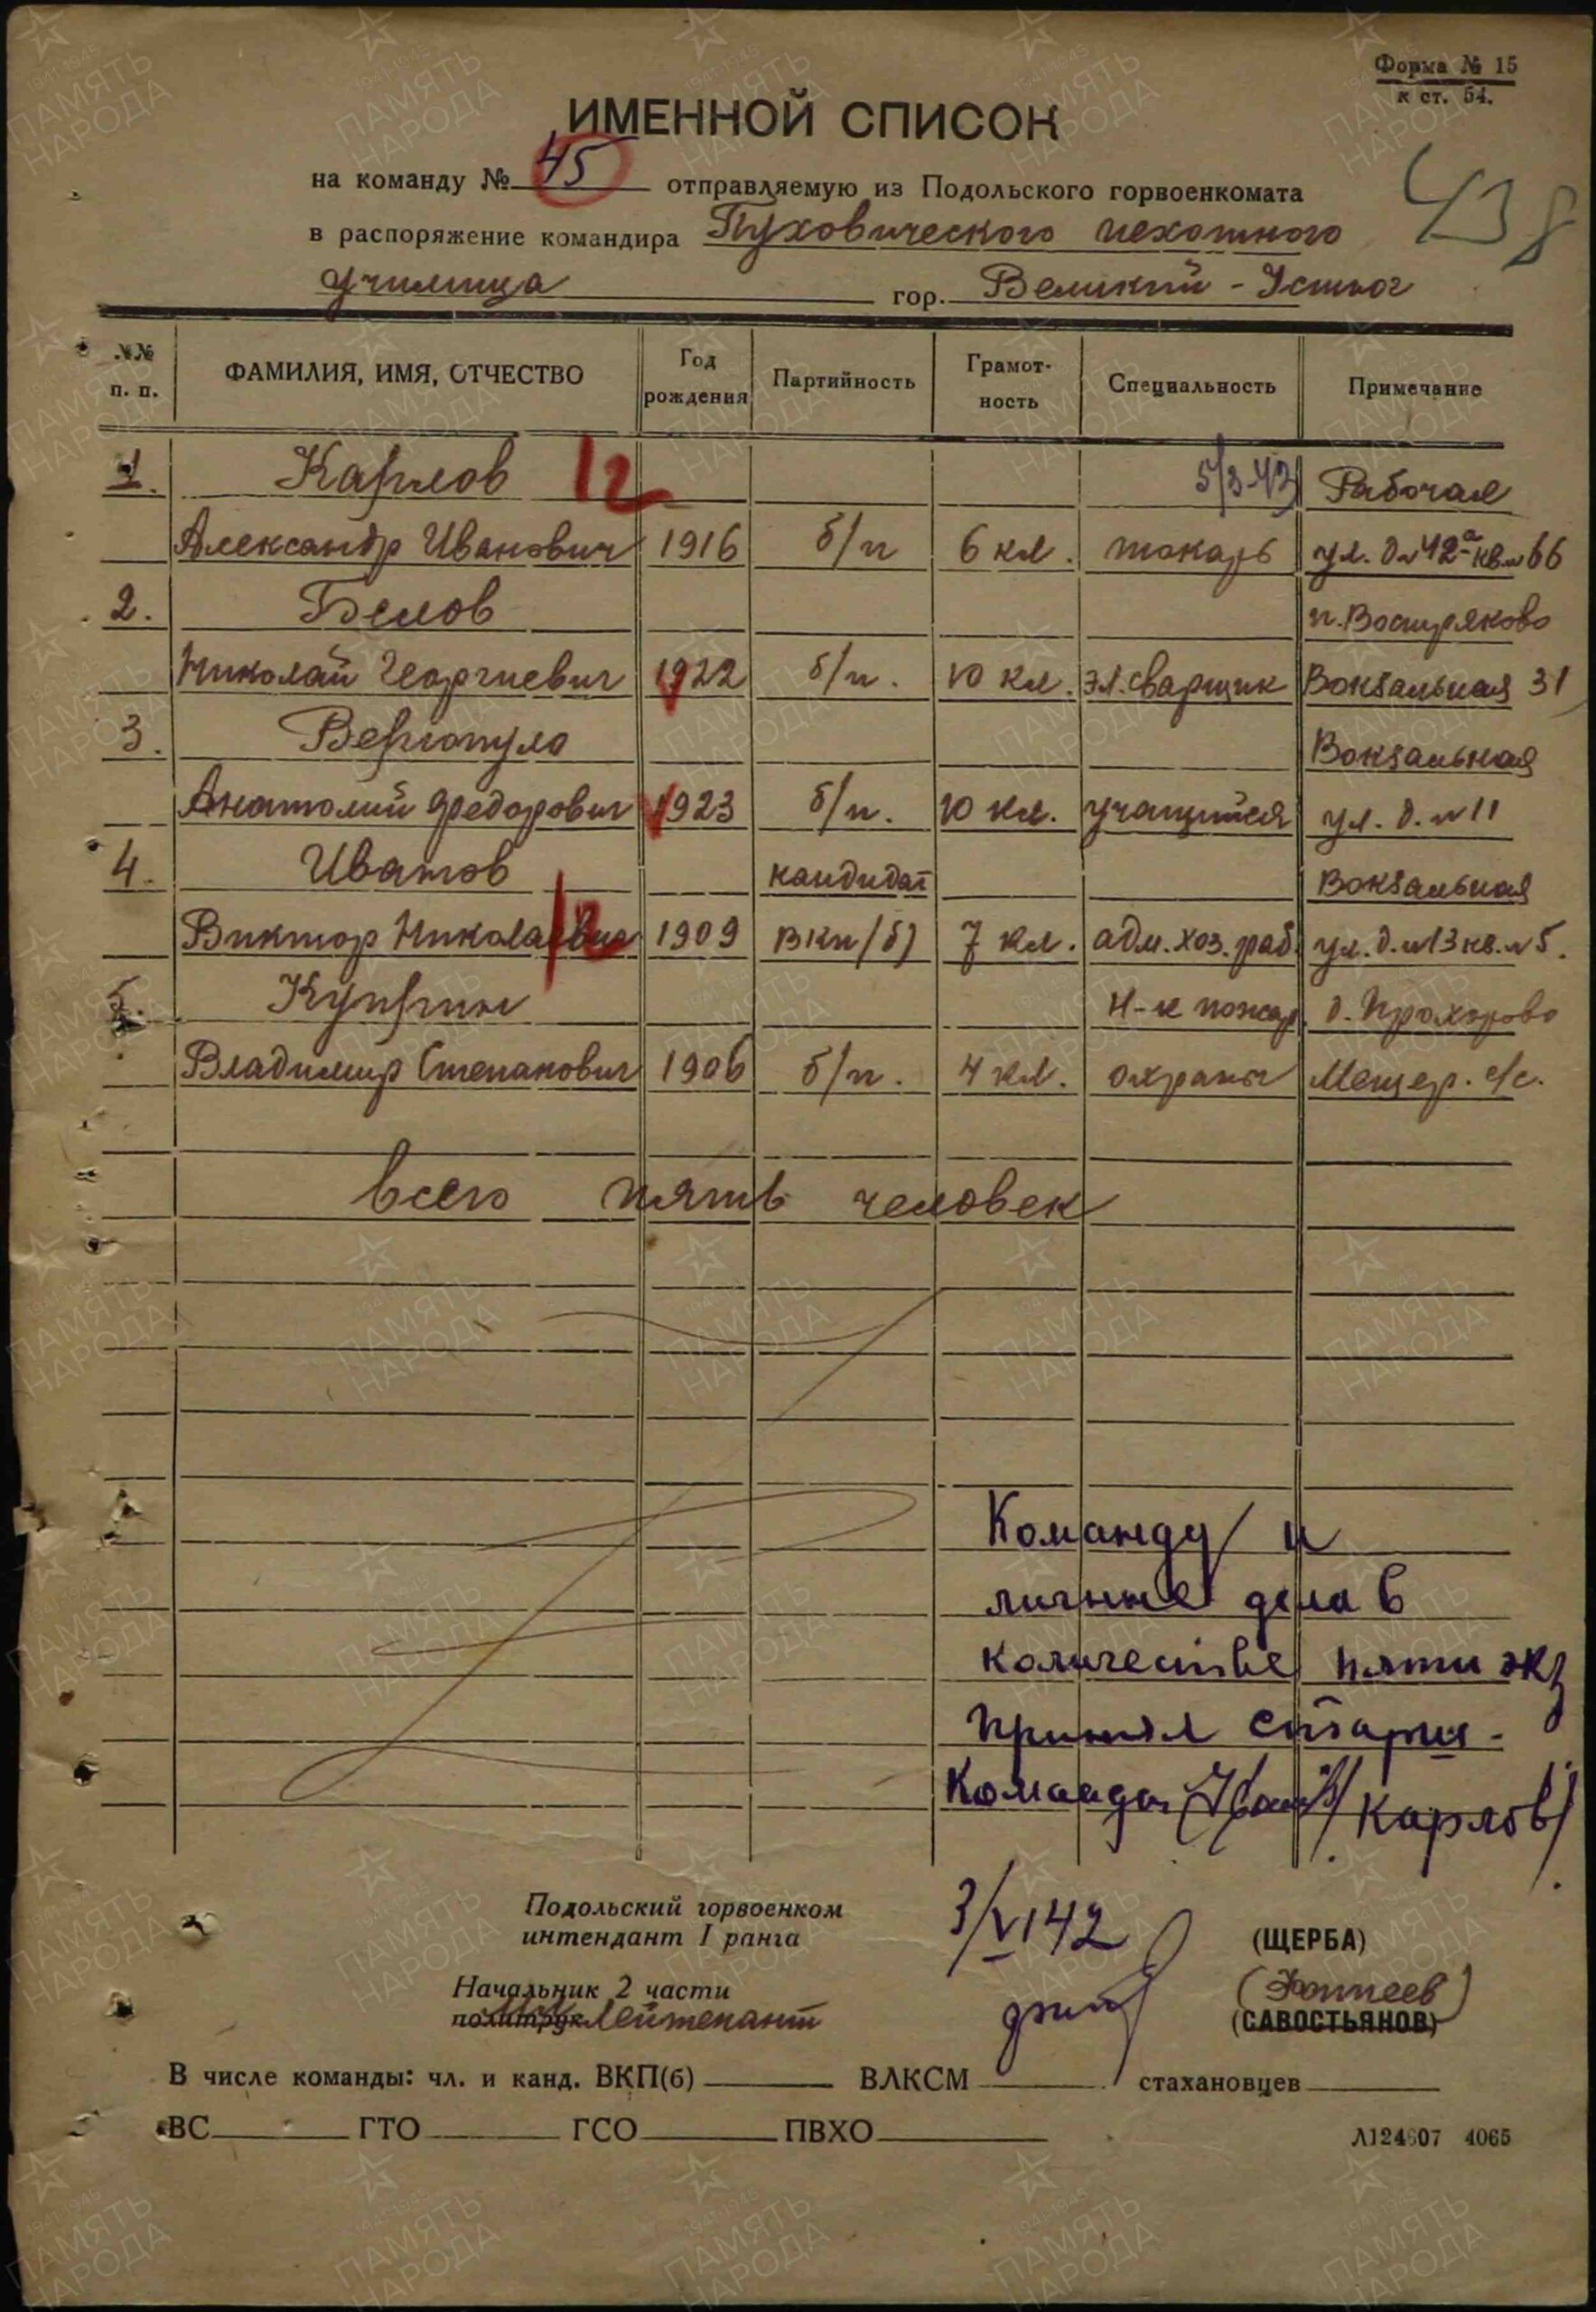 Форма № 15
к ст. 54.
438
ИМЕННОЙ СПИСОК
на команду № 45 отправляемую из Подольского горвоенкомата
в распоряжение командира Пуховического пехотного
училища гор. Великий - Устюг
№№ п. п. ФАМИЛИЯ, ИМЯ, ОТЧЕСТВО Год рождения Партийность Грамот-ность Специальность Примечание
1. Карлов 12 5/3-43 Рабочая
Александр Иванович 1916 б/п 6 кл. токарь ул. д №42а кв. №66
2. Белов п. Востряково
Николай Георгиевич 1922 б/п. 10 кл. эл. сварщик Вокзальная 31
3. Вергопуло Вокзальная
Анатолий Федорович 1923 б/п. 10 кл. учащийся ул. д. №11
4. Иванов кандидат Вокзальная
Виктор Николаевич 1909 вкп/б) 7 кл. адм. хоз. раб. ул. д. №13 кв. №5.
5. Куприн Н-к пожар. д. Прохорово
Владимир Степанович 1906 б/п. 4 кл. охраны Мещер. с/с.
Всего пять человек
Команду и
личные дела в
количестве пяти экз
принял старш.
команды /Карлов/
Подольский горвоенком
интендант I ранга 3/VI 42 (ЩЕРБА)
Начальник 2 части
политрук Лейтенант (САВОСТЬЯНОВ)
В числе команды: чл. и канд. ВКП(б) ВЛКСМ стахановцев
ВС ГТО ГСО ПВХО
Л124607 4065
1941-1945
ПАМЯТЬ
НАРОДА